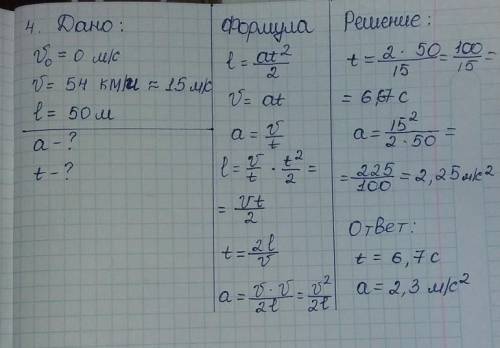 4. Дано:
v₀ = 0 м/с
v = 54 км/ч ≈ 15 м/с
l = 50 м
a - ?
t - ?
Формула
l = at²/2
v = at
a = v/t
l = v/t · t²/2 =
= vt/2
t = 2l/v
a = v · v/2l = v²/2l
Решение:
t = 2 · 50/15 = 100/15 =
= 6,67 с
a = 15²/2 · 50 =
= 225/100 = 2,25 м/с²
Ответ:
t = 6,7 с
a = 2,3 м/с²